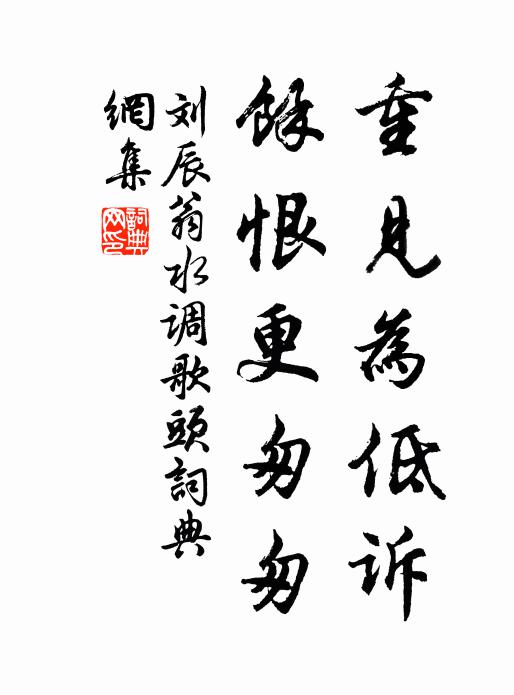 重見為低訴
餘恨更匆匆
刘辰翁水调歌頭詞典
網集
詞典網印